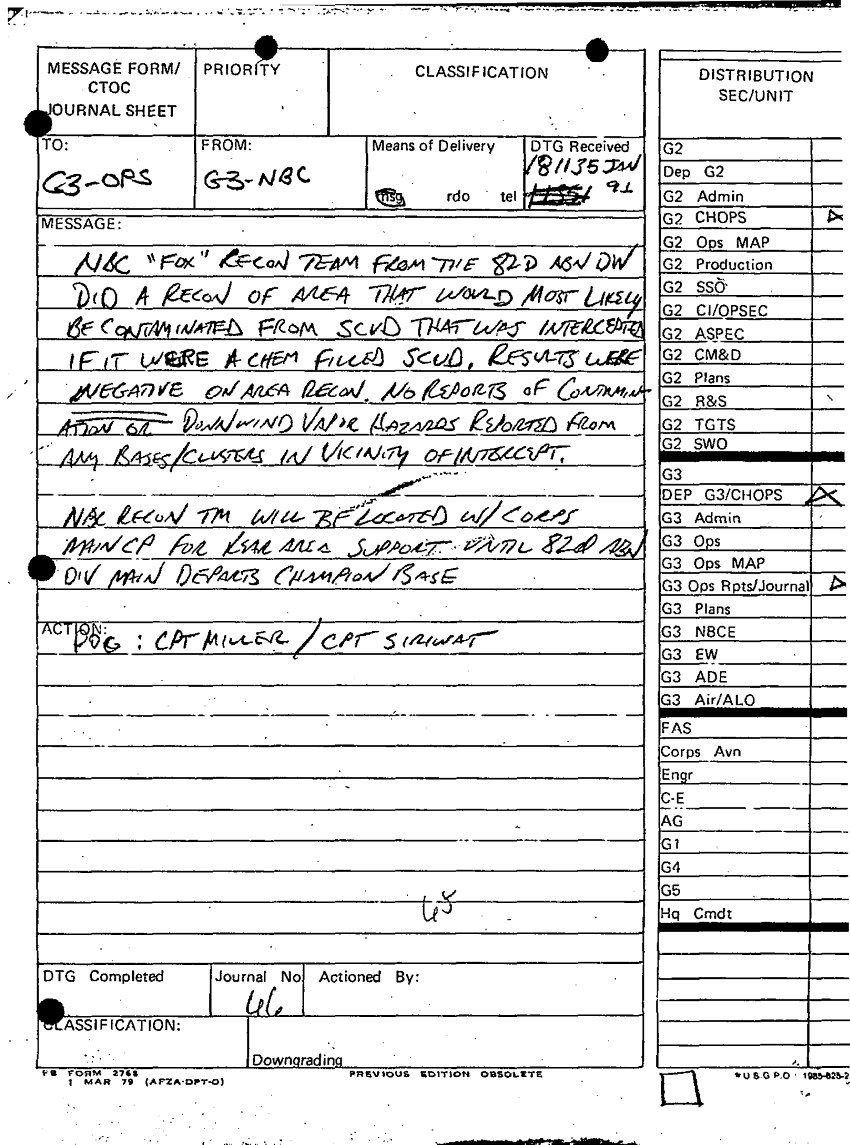 MESSAGE FORM/
CTOC
JOURNAL SHEET
PRIORITY
CLASSIFICATION
TO:
G3-OPS
FROM:
G3-NBC
Means of Delivery
msg rdo tel
DTG Received
181135 JAN
91
MESSAGE:
NBC "FOX" RECON TEAM FROM THE 82D ABN DIV
DID A RECON OF AREA THAT WOULD MOST LIKELY
BE CONTAMINATED FROM SCUD THAT WAS INTERCEPTED
IF IT WERE A CHEM FILLED SCUD. RESULTS WERE
NEGATIVE ON AREA RECON. NO REPORTS OF CONTAMIN-
ATION OR DOWNWIND VAPOR HAZARDS REPORTED FROM
ANY BASES/CLUSTERS IN VICINITY OF INTERCEPT.
NBC RECON TM WILL BE LOCATED W/ CORPS
MAIN CP FOR REAR AREA SUPPORT UNTIL 82D ABN
DIV MAIN DEPARTS CHAMPION BASE
ACTION:
POC : CPT MILLER / CPT SIRIWAT
65
DTG Completed
Journal No
66
Actioned By:
CLASSIFICATION:
Downgrading
FB FORM 2768
1 MAR 79 (AFZA-DPT-O)
PREVIOUS EDITION OBSOLETE
DISTRIBUTION
SEC/UNIT
G2
Dep G2
G2 Admin
G2 CHOPS
G2 Ops MAP
G2 Production
G2 SSO
G2 CI/OPSEC
G2 ASPEC
G2 CM&D
G2 Plans
G2 R&S
G2 TGTS
G2 SWO
G3
DEP G3/CHOPS
G3 Admin
G3 Ops
G3 Ops MAP
G3 Ops Rpts/Journal
G3 Plans
G3 NBCE
G3 EW
G3 ADE
G3 Air/ALO
FAS
Corps Avn
Engr
C-E
AG
G1
G4
G5
Hq Cmdt
*U.S.G.P.O. 1985-625-2